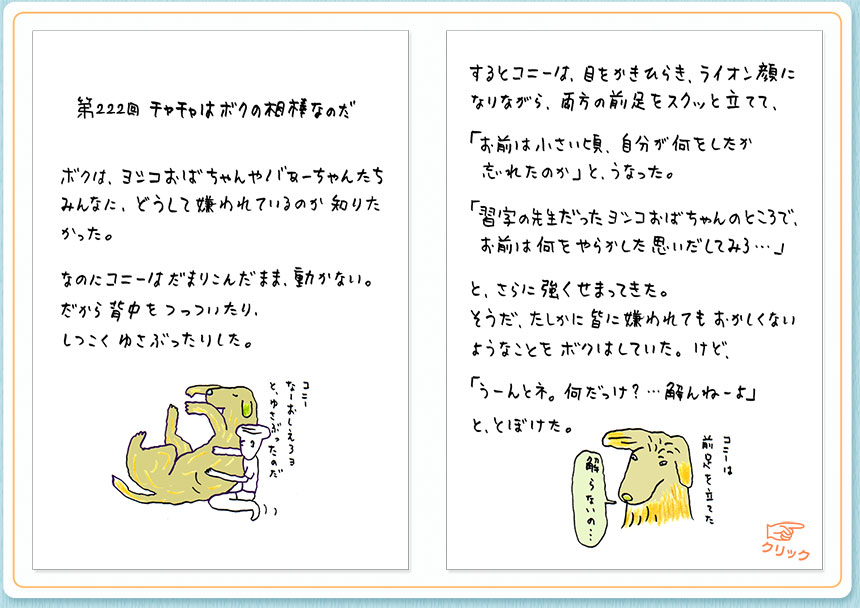 第222回 チャチャはボクの相棒なのだ
ボクは、ヨシコおばちゃんやバァーちゃんたち
みんなに、どうして嫌われているのか知りた
かった。
なのにコニーはだまりこんだまま、動かない。
だから背中をつっついたり、
しつこくゆさぶったりした。
コニー
なーおしえろヨ
と、ゆさぶったのだ
するとコニーは、目をかきひらき、ライオン顔に
なりながら、両方の前足をスクッと立てて、
「お前は小さい頃、自分が何をしたか
忘れたのか」と、うなった。
「習字の先生だったヨシコおばちゃんのところで、
お前は何をやらかした思いだしてみろ…」
と、さらに強くせまってきた。
そうだ、たしかに皆に嫌われてもおかしくない
ようなことをボクはしていた。けど、
「うーんとネ。何だっけ?…解んねーよ」
と、とぼけた。
コニーは
前足を立てた
解らないの…
クリック